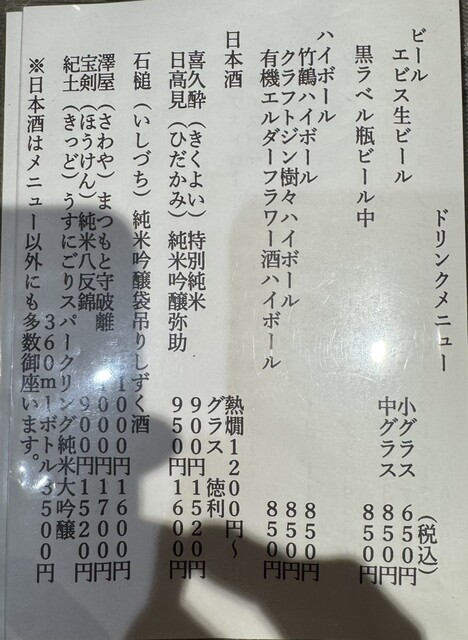 ドリンクメニュー
（税込）
ビール
エビス生ビール 小グラス 650円
中グラス 850円
黒ラベル瓶ビール中 850円
ハイボール
竹鶴ハイボール 850円
クラフトジン樹々ハイボール 850円
有機エルダーフラワー酒ハイボール 850円
日本酒 熱燗1200円～
グラス 徳利
喜久酔（きくよい）特別純米 900円 1520円
日高見（ひだかみ）純米吟醸弥助 950円 1600円
石槌（いしづち）純米吟醸袋吊りしずく酒
1000円 1600円
澤屋（さわや）まつもと守破離 1000円 1700円
宝剣（ほうけん）純米八反錦 900円 1520円
紀土（きっど）うすにごりスパークリング純米大吟醸
360mlボトル 3500円
※日本酒はメニュー以外にも多数御座います。